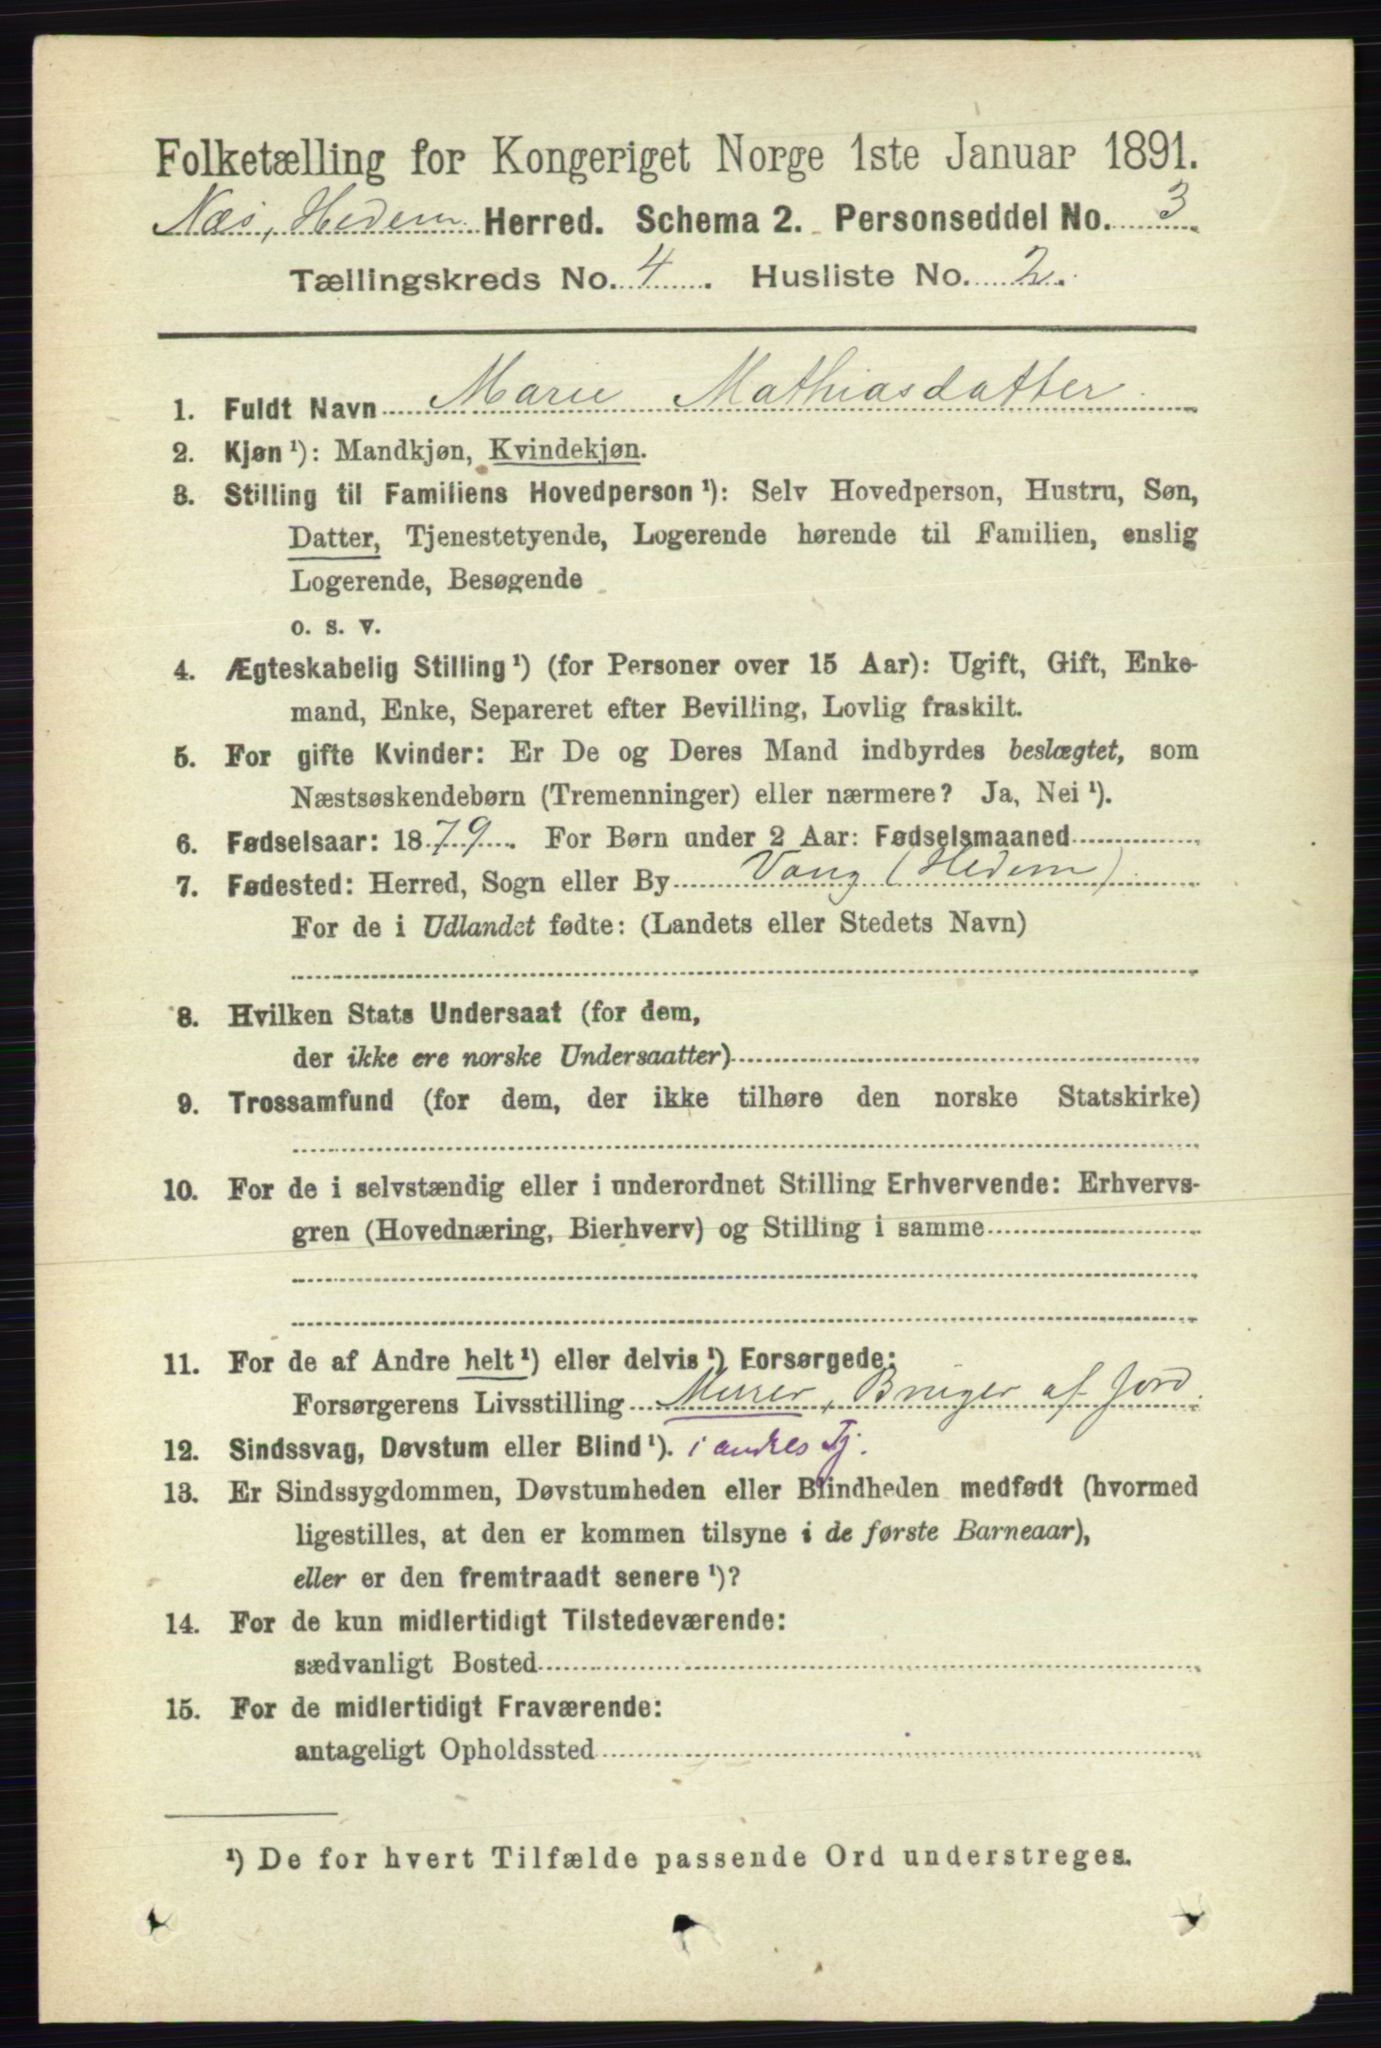 Folketælling for Kongeriget Norge 1ste Januar 1891.
Næs, Hedem Herred. Schema 2. Personseddel No. 3
Tællingskreds No. 4. Husliste No. 2.
1. Fuldt Navn Marie Mathiasdatter.
2. Kjøn ¹): Mandkjøn, Kvindekjøn.
3. Stilling til Familiens Hovedperson ¹): Selv Hovedperson, Hustru, Søn,
Datter, Tjenestetyende, Logerende hørende til Familien, enslig
Logerende, Besøgende
o. s. v.
4. Ægteskabelig Stilling ¹) (for Personer over 15 Aar): Ugift, Gift, Enke-
mand, Enke, Separeret efter Bevilling, Lovlig fraskilt.
5. For gifte Kvinder: Er De og Deres Mand indbyrdes beslægtet, som
Næstsøskendebørn (Tremenninger) eller nærmere? Ja, Nei ¹).
6. Fødselsaar: 1879. For Børn under 2 Aar: Fødselsmaaned
7. Fødested: Herred, Sogn eller By Vang (Hedem).
For de i Udlandet fødte: (Landets eller Stedets Navn)
8. Hvilken Stats Undersaat (for dem,
der ikke ere norske Undersaatter)
9. Trossamfund (for dem, der ikke tilhøre den norske Statskirke)
10. For de i selvstændig eller i underordnet Stilling Erhvervende: Erhvervs-
gren (Hovednæring, Bierhverv) og Stilling i samme
11. For de af Andre helt ¹) eller delvis ¹) Forsørgede:
Forsørgerens Livsstilling Murer, Bruger af Jord.
12. Sindssvag, Døvstum eller Blind ¹). i andres Tj.
13. Er Sindssygdommen, Døvstumheden eller Blindheden medfødt (hvormed
ligestilles, at den er kommen tilsyne i de første Barneaar),
eller er den fremtraadt senere ¹)?
14. For de kun midlertidigt Tilstedeværende:
sædvanligt Bosted
15. For de midlertidigt Fraværende:
antageligt Opholdssted
¹) De for hvert Tilfælde passende Ord understreges.